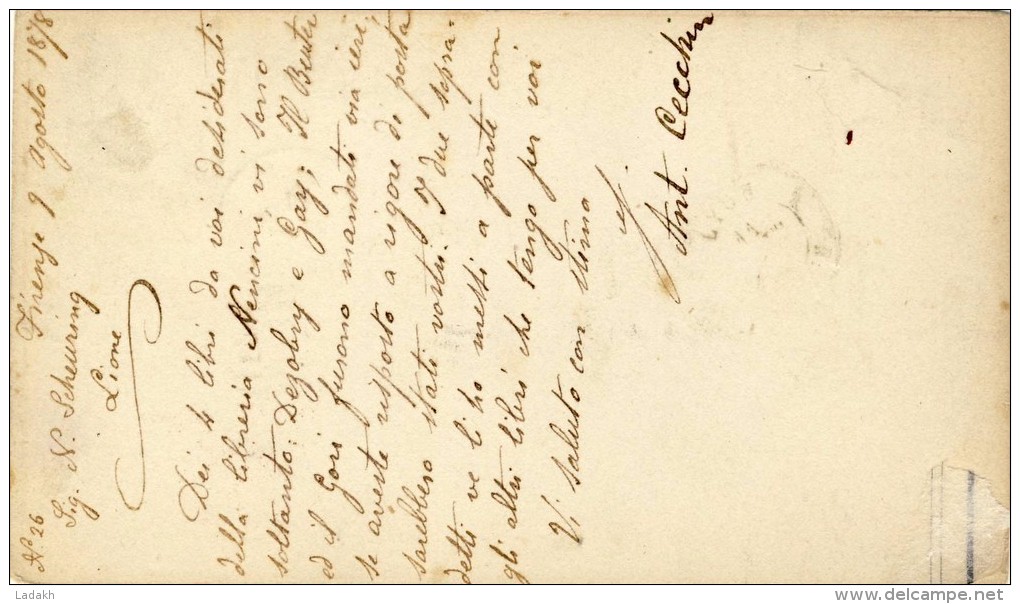 N. 26
Firenze 9 Agosto 1878
Sig. N. Scheuring
Lione
Dei 4 libri da voi desiderati
della libreria Nencini vi sono
soltanto: Dezobry e Gay; Il Bentu
ed il Gori furono mandati via ieri,
se aveste risposto a rigore di posta
sarebbero stati vostri. I due sopra-
detti ve li ho messi a parte con
gli altri libri che tengo per voi
Vi saluto con stima
Ant. Cecchin
Ladakh
delcampe.net